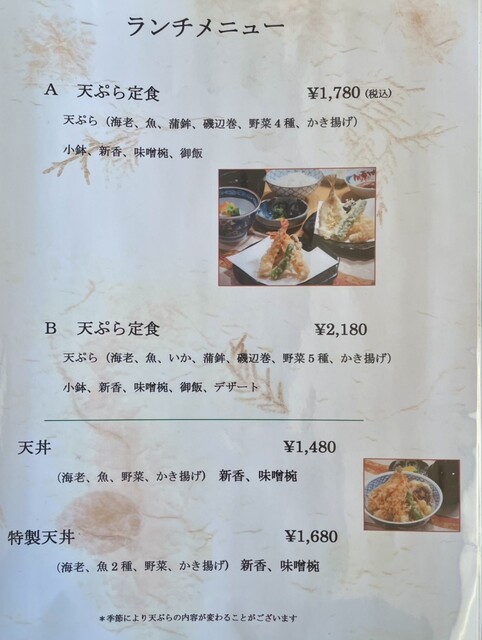 ランチメニュー
A 天ぷら定食 ¥1,780 (税込)
天ぷら（海老、魚、蒲鉾、磯辺巻、野菜４種、かき揚げ）
小鉢、新香、味噌椀、御飯
B 天ぷら定食 ¥2,180
天ぷら（海老、魚、いか、蒲鉾、磯辺巻、野菜５種、かき揚げ）
小鉢、新香、味噌椀、御飯、デザート
天丼 ¥1,480
（海老、魚、野菜、かき揚げ） 新香、味噌椀
特製天丼 ¥1,680
（海老、魚２種、野菜、かき揚げ） 新香、味噌椀
＊季節により天ぷらの内容が変わることがございます